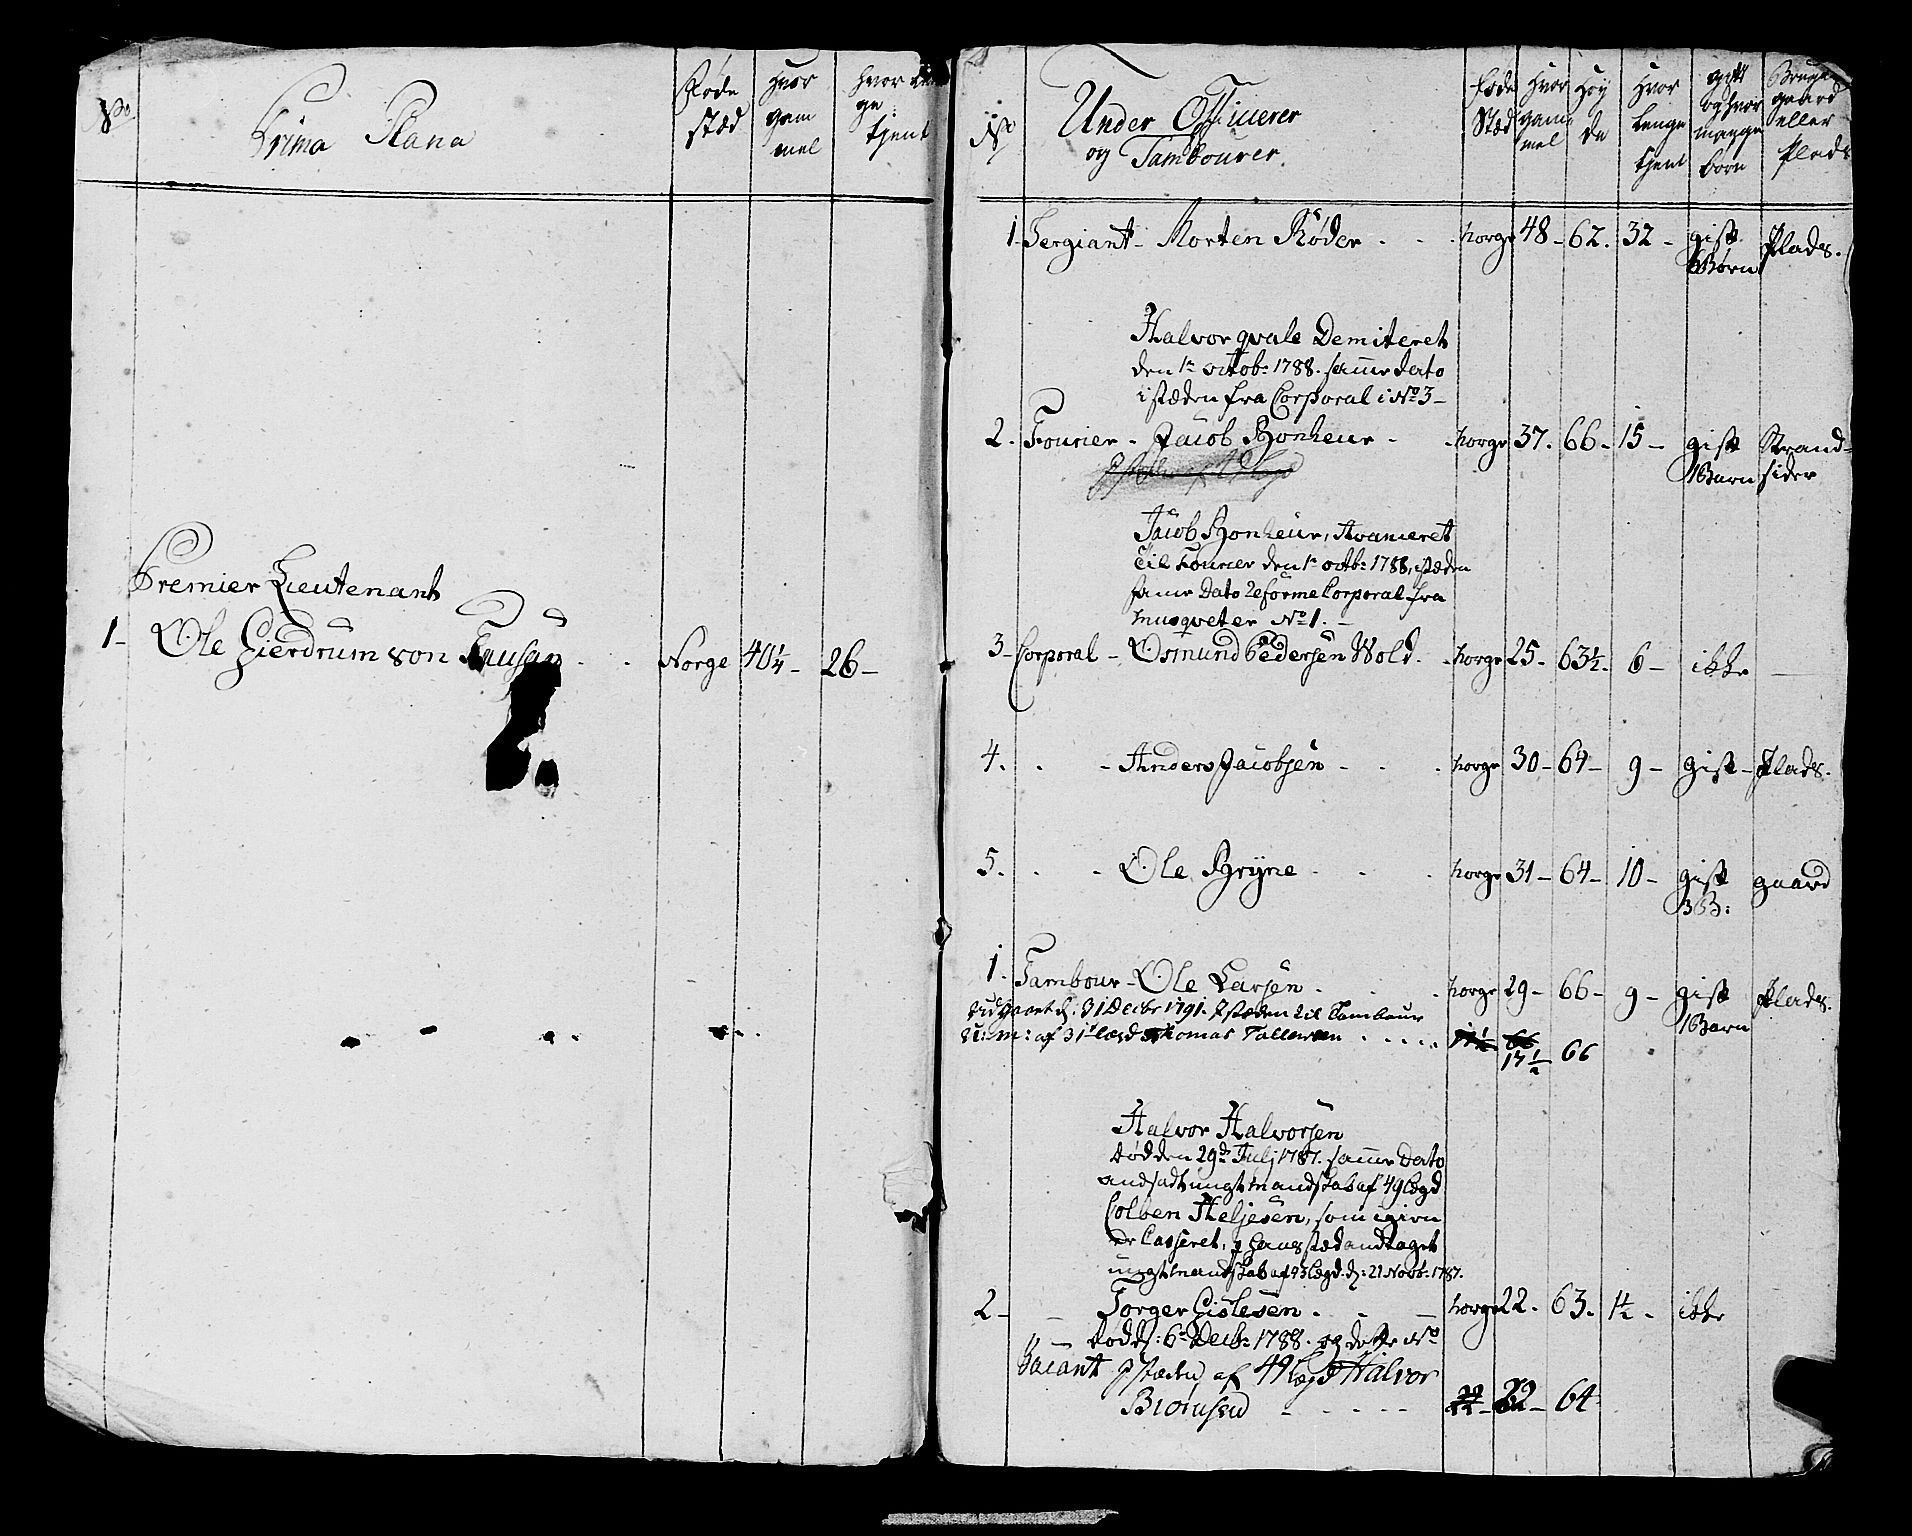 No
Prima Plana
Føde
stæd
Hvor
gam
mel
Hvor len
ge
tjent
Premier Lieutenant
1- Ole Gierdrum von . . Norge 40¼- 26-
No
Under Officerer
og Tambourer.
Føde
Stæd
Hvor
gam
mel
Høy
de
Hvor
Lenge
tjent
gift
og hvor
mange
børn
Bruger
gaard
eller
Plads
1. Sergiant- Morten Røder . . . Norge 48- 62. 32- gift Plads.
Børn
Halvor qvale Demiteret
den 1te octob: 1788. samme Dato
i stæden fra Corporal i No 3-
2. Fourier- Jacob Bonheur - . Norge 37. 66- 15- gift Strand-
1 Barn sider
Jacob Bonheur, Avanceret
til Fourier den 1te octb: 1788, i stæden
samme Dato Reforme Corporal fra
Musqveter No 1. -
3 Corporal- Osmund Pedersen Wold. . Norge 25- 63½. 6- ikke
4. . - Anders Jacobsen - . . Norge 30- 64- 9- gift- Plads.
5. . - Ole Bryne . . . Norge 31- 64- 10- gift gaard
3 B:
1. Tambour- Ole Larsen . . . Norge 29- 66- 9- gift Plads.
1 Barn
Udgaaet d: 31 Decbr 1791. I stæden til Tambour
U: M: af 31 Lægd Thomas Tallevsen . . . . . 17½ 66
17½ 66
Halvor Halvorsen
død den 29de Julj 1787. samme Dato
andsadt ungt Mandskab af 49 Lægd
Colben Heljesen, som igien
er Casseret, i hans stæd andtaget
ungt Mandskab af 93 Lægd. d: 21 Novb: 1787.
2- - Torger Gislesen . - - Norge 22. 63. 1½- ikke
død d: 6te Decb: 1788. og dette No
Vacant I stæden af 49 Lægd Halvor
Biørnsen - - - - - 22- 22- 64-